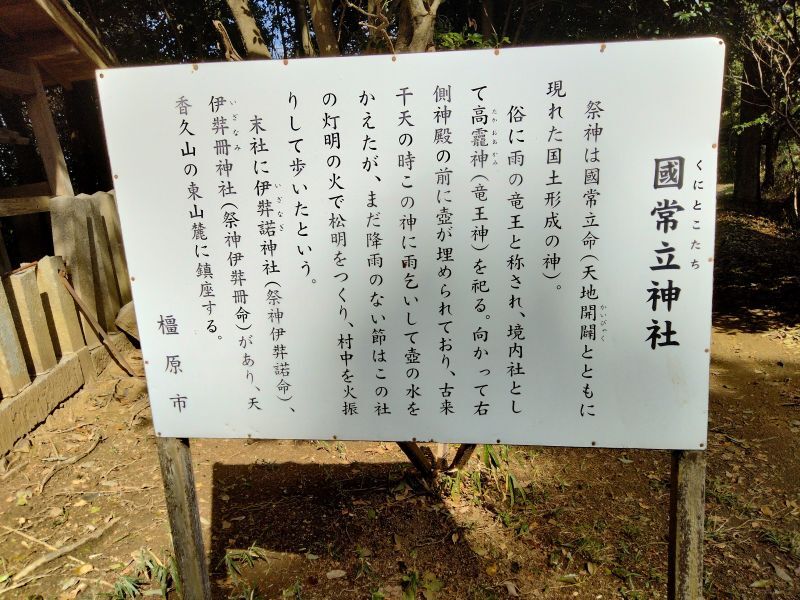 くにとこたち
國常立神社
祭神は國常立命(天地開闢とともに
かいびゃく
現れた国土形成の神)。
俗に雨の竜王と称され、境内社とし
て高龗神(竜王神)を祀る。向かって右
たかおおかみ
側神殿の前に壺が埋められており、古来
干天の時この神に雨乞いして壺の水を
かえたが、まだ降雨のない節はこの社
の灯明の火で松明をつくり、村中を火振
りして歩いたという。
末社に伊弉諾神社(祭神伊弉諾命)、
いざなぎ
伊弉冊神社(祭神伊弉冊命)があり、天
いざなみ
香久山の東山麓に鎮座する。
橿原市